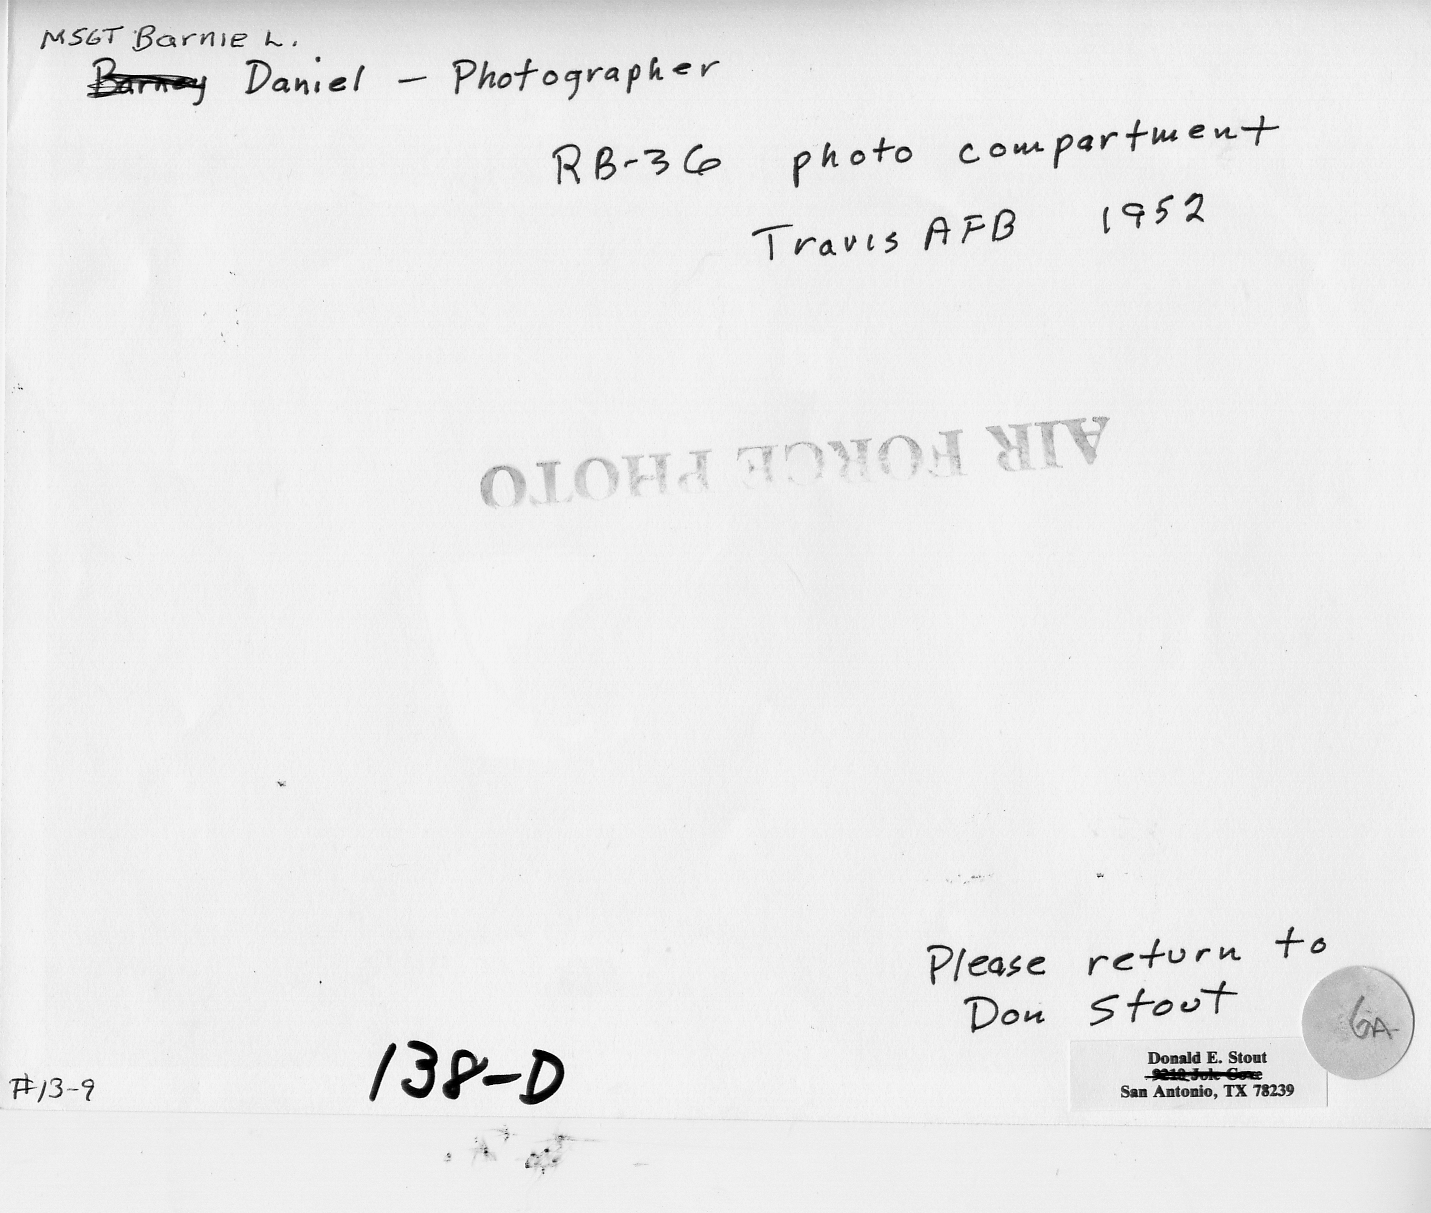 MSGT Barnie L.
Barney Daniel – Photographer
RB-36 photo compartment
Travis AFB 1952
AIR FORCE PHOTO
Please return to
Don Stout
6A
Donald E. Stout
San Antonio, TX 78239
138-D
#13-9